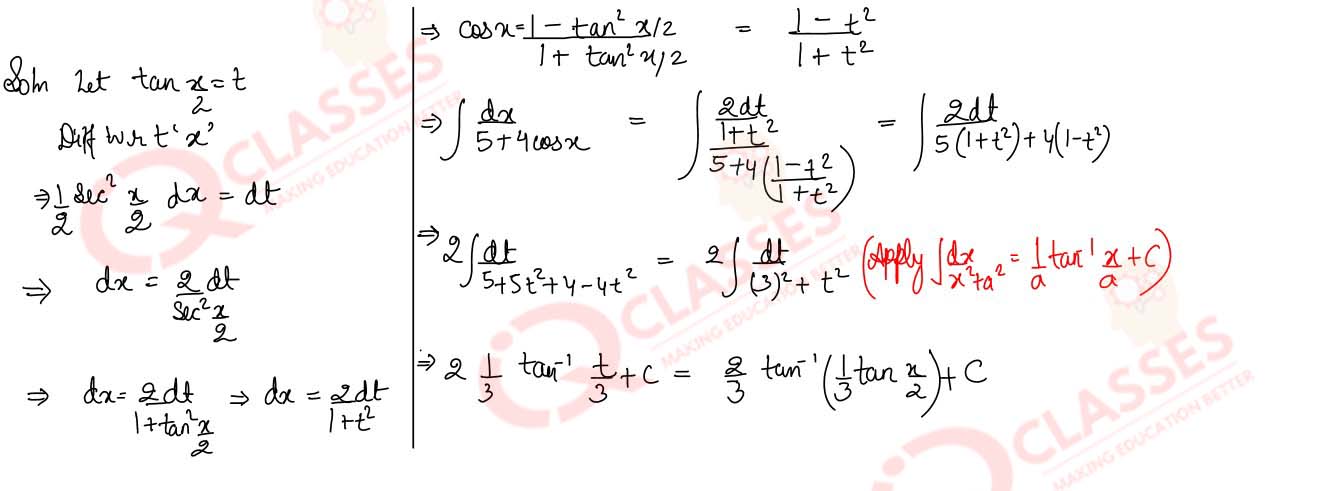 Soln Let tan x/2 = t
Diff w.r.t 'x'
⇒ 1/2 sec² x/2 dx = dt
⇒ dx = 2dt/(sec² x/2)
⇒ dx = 2dt/(1+tan² x/2) ⇒ dx = 2dt/(1+t²)
⇒ cosx = (1 - tan² x/2)/(1 + tan² x/2) = (1 - t²)/(1 + t²)
⇒ ∫ dx/(5+4cosx) = ∫ (2dt/(1+t²))/(5+4((1-t²)/(1+t²))) = ∫ 2dt/(5(1+t²)+4(1-t²))
⇒ 2∫ dt/(5+5t²+4-4t²) = 2∫ dt/((3)²+t²) (Apply ∫ dx/(x²+a²) = 1/a tan⁻¹ x/a + C)
⇒ 2 1/3 tan⁻¹ t/3 + C = 2/3 tan⁻¹(1/3 tan x/2) + C
IQ CLASSES
MAKING EDUCATION BETTER
IQ CLASSES
MAKING EDUCATION BETTER
IQ CLASSES
MAKING EDUCATION BETTER